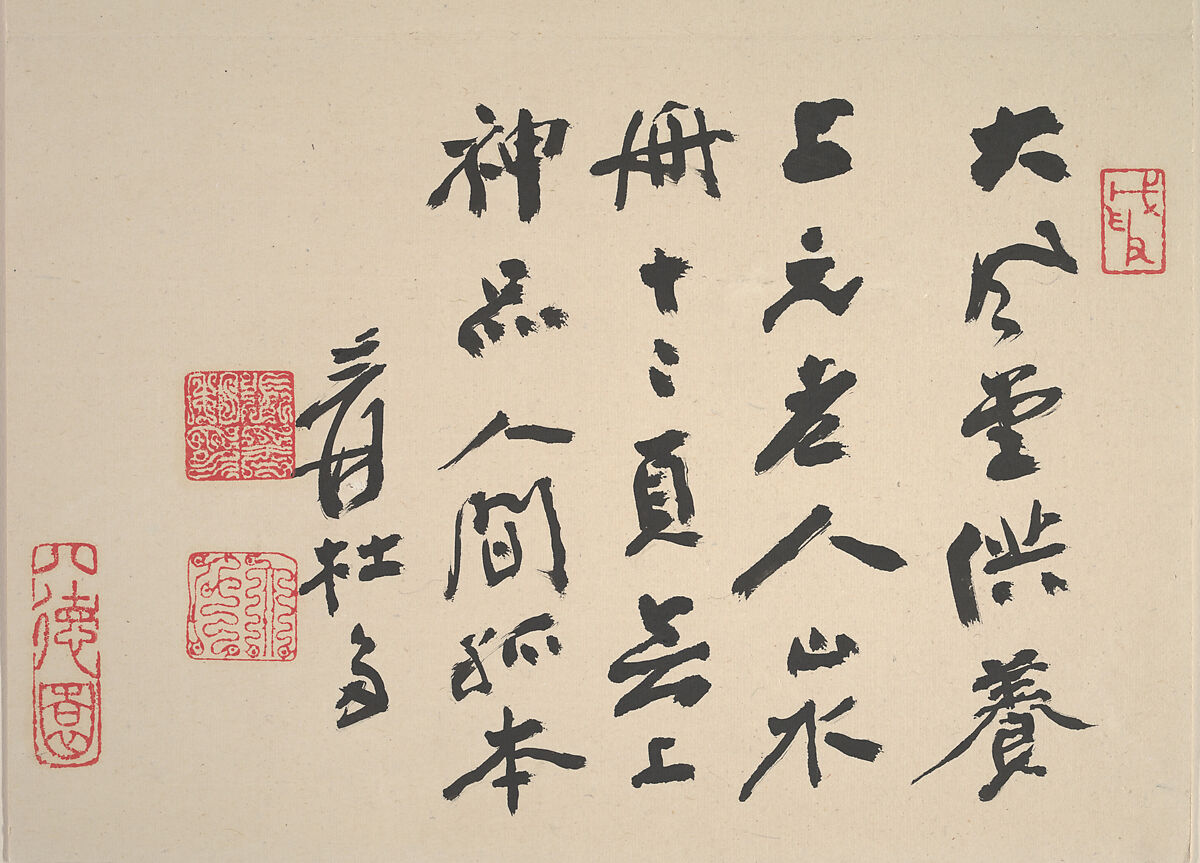 大風堂供養
元老人山水
冊十二頁無上
神品人間孤本
爰杜多
八德園